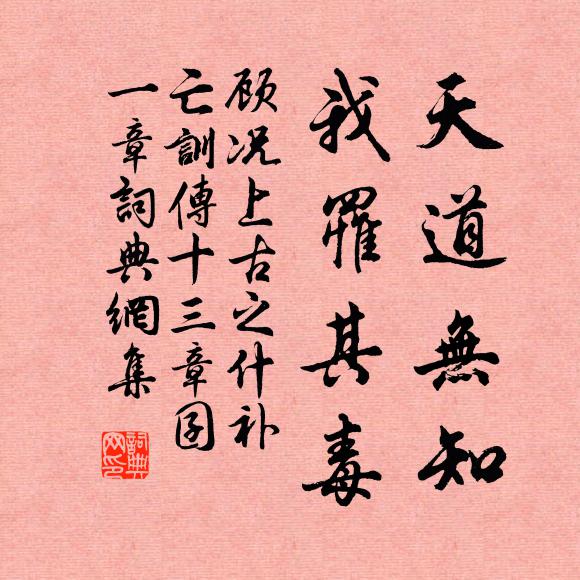 天道無知
我罹其毒
顾况上古之什补
亡訓傳十三章囝
一章詞典網集
詞典网印